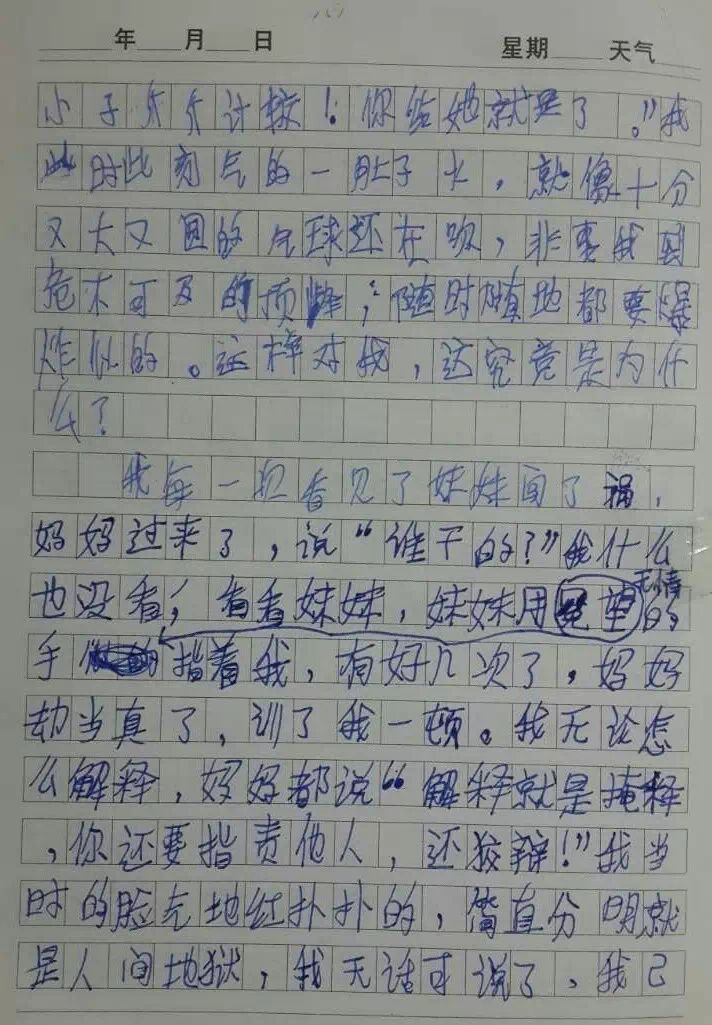 年 月 日 星期 天气
小子斤斤计较！你给她就是了。”我
此时此刻气的一肚子火，就像十分
又大又圆的气球还在吹，非要我到
危不可及的顶峰，随时随地都要爆
炸似的。这样对我，这究竟是为什
么？
我每一次看见了妹妹闯了祸，
妈妈过来了，说“谁干的？”我什么
也没看，看看妹妹，妹妹用无情的
手指着我，有好几次了，妈妈
却当真了，训了我一顿。我无论怎
么解释，妈妈都说“解释就是掩释
，你还要指责他人，还狡辩！”我当
时的脸气地红扑扑的，简直分明就
是人间地狱，我无话可说了，我已